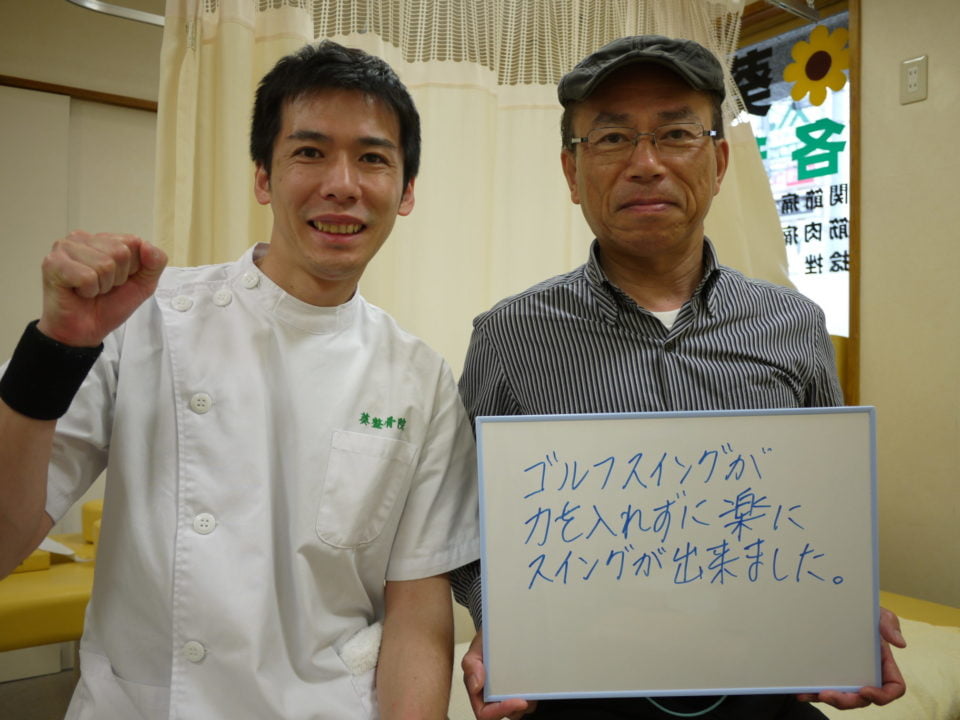 葵整骨院
ゴルフスイングが
力を入れずに楽に
スイングが出来ました。
葵
各
関節痛
筋肉痛
捻挫